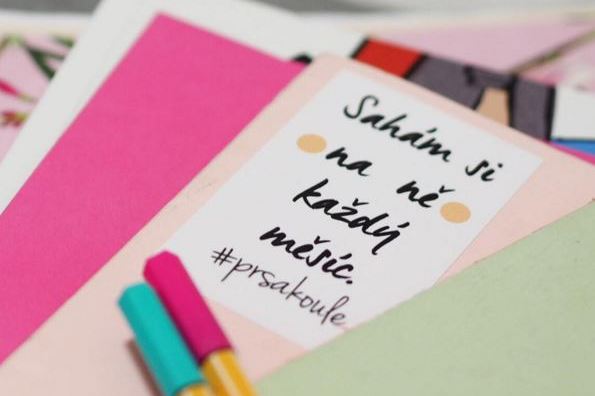 Sahám si
na ně
každý
měsíc.
#prsakoule